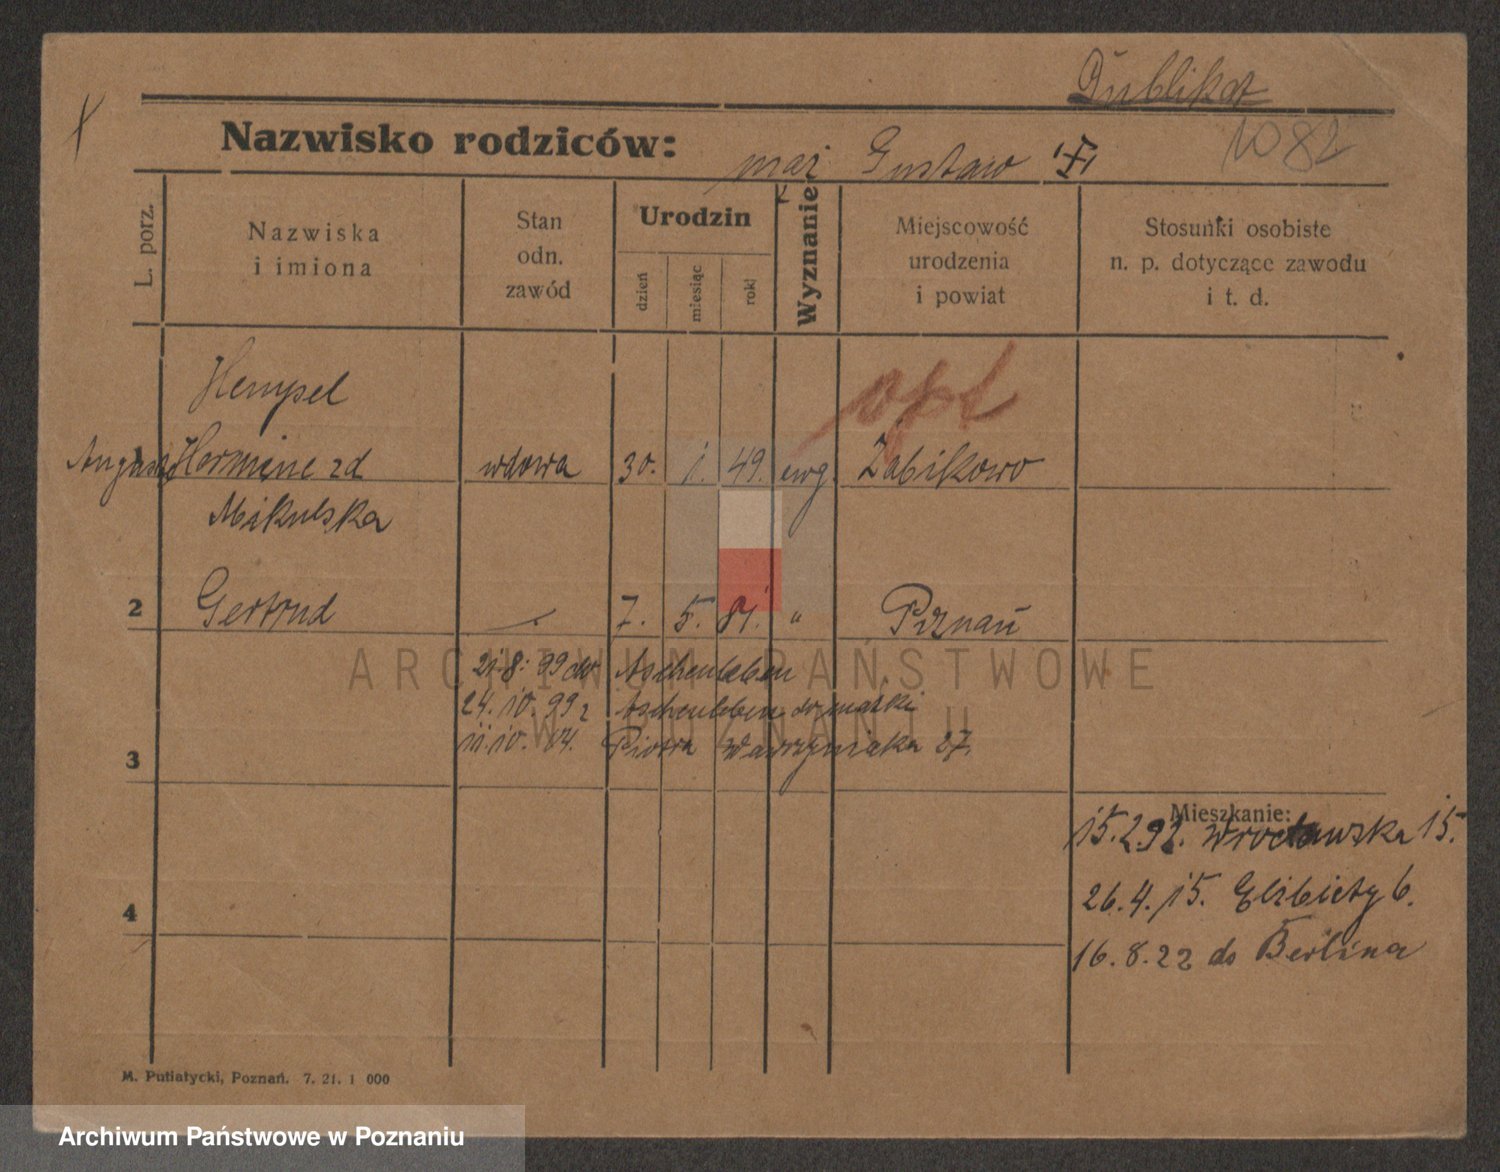 Dublikat
Nazwisko rodziców: mąż Gustaw
1082
L. porz.
Nazwiska
i imiona
Stan
odn.
zawód
Urodzin
dzień
miesiąc
rok
Wyznanie
Miejscowość
urodzenia
i powiat
Stosunki osobiste
n. p. dotyczące zawodu
i t. d.
Hempel
opt
1 Hermine zd wdowa 30. 1. 49. ewg. Żabikowo
Mikulska
2 Gertrud 7. 5. 81. " Poznań
21.8.99 do Aschenleben
24.10.99 z Aschenleben do matki
11.10.04. Piotra Wawrzyniaka 27.
ARCHIWUM PAŃSTWOWE
W POZNANIU
3
Mieszkanie:
15.2.92. Wrocławska 15.
4
26.4.15. Elżbiety 6.
16.8.22 do Berlina
M. Putiatycki, Poznań. 7. 21. 1 000
Archiwum Państwowe w Poznaniu